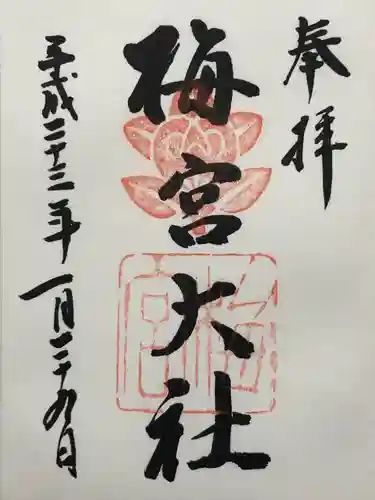 奉拝
梅宮大社
梅宮
平成二十三年一月二十九日